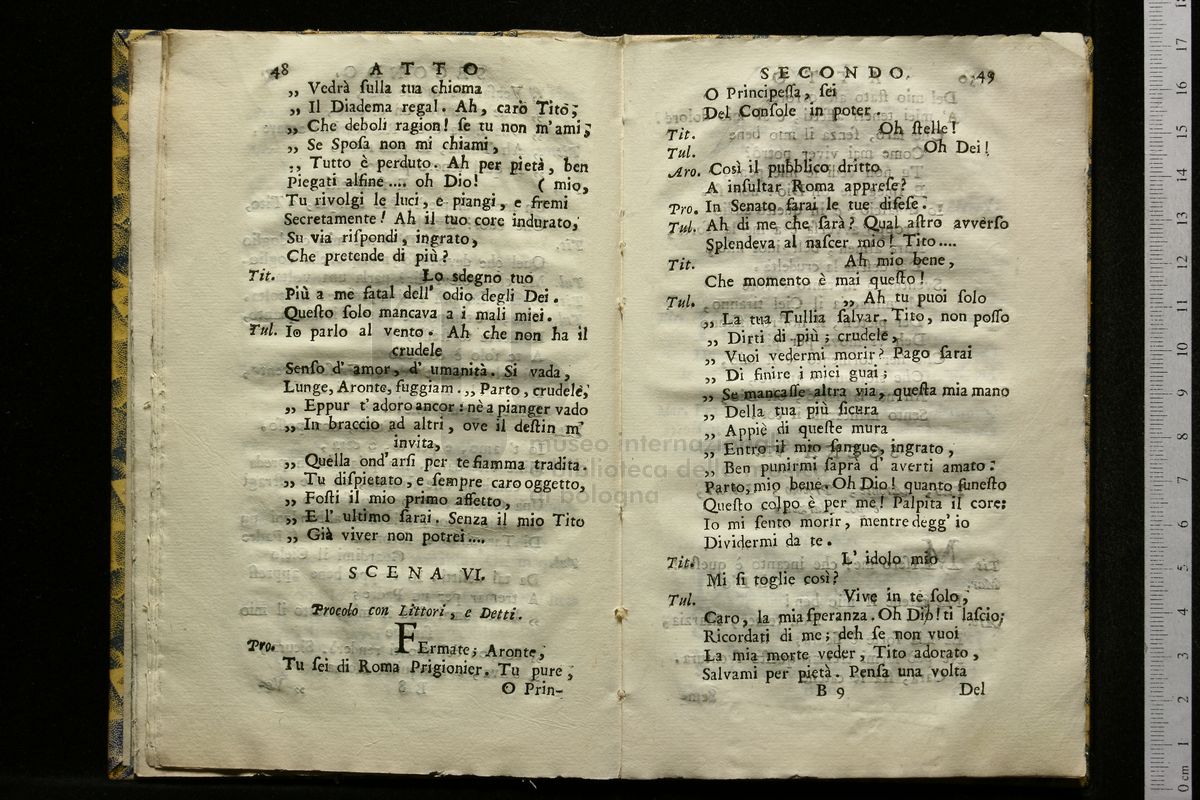 48 ATTO
„ Vedrà ſulla tua chioma
„ Il Diadema regal. Ah, caro Tito;
„ Che deboli ragion! ſe tu non m'ami;
„ Se Spoſa non mi chiami,
„ Tutto è perduto. Ah per pietà, ben
Piegati alfine .... oh Dio! ( mio,
Tu rivolgi le luci, e piangi, e fremi
Secretamente! Ah il tuo core indurato,
Su via riſpondi, ingrato,
Che pretende di più?
Tit. Lo sdegno tuo
Più a me fatal dell' odio degli Dei.
Queſto ſolo mancava a i mali miei.
Tul. Io parlo al vento. Ah che non ha il
crudele
Senſo d' amor, d' umanità. Si vada,
Lunge, Aronte, fuggiam. „ Parto, crudele;
„ Eppur t'adoro ancor: nè a pianger vado
„ In braccio ad altri, ove il deſtin m'
invita,
„ Quella ond'arſi per te fiamma tradita.
„ Tu diſpietato, e ſempre caro oggetto,
„ Foſti il mio primo affetto,
„ E l' ultimo ſarai. Senza il mio Tito
„ Già viver non potrei....
SCENA VI.
Procolo con Littori, e Detti.
Pro. FErmate; Aronte,
Tu ſei di Roma Prigionier. Tu pure,
O Prin-
SECONDO. 49
O Principeſſa, ſei
Del Conſole in poter.
Tit. Oh ſtelle!
Tul. Oh Dei!
Aro. Così il pubblico dritto
A inſultar Roma appreſe?
Pro. In Senato farai le tue difeſe.
Tul. Ah di me che ſarà? Qual aſtro avverſo
Splendeva al naſcer mio! Tito....
Tit. Ah mio bene,
Che momento è mai queſto!
Tul. „ Ah tu puoi ſolo
„ La tua Tullia ſalvar. Tito, non poſſo
„ Dirti di più; crudele,
„ Vuoi vedermi morir? Pago ſarai
„ Di finire i miei guai;
„ Se mancaſſe altra via, queſta mia mano
„ Della tua più ſicura
„ Appiè di queſte mura
„ Entro il mio ſangue, ingrato,
„ Ben punirmi ſaprà d' averti amato:
Parto, mio bene. Oh Dio! quanto funeſto
Queſto colpo è per me! Palpita il core:
Io mi ſento morir, mentre degg' io
Dividermi da te.
Tit. L' idolo mio
Mi ſi toglie così?
Tul. Vive in te ſolo,
Caro, la mia ſperanza. Oh Dio! ti laſcio;
Ricordati di me; deh ſe non vuoi
La mia morte veder, Tito adorato,
Salvami per pietà. Penſa una volta
B 9 Del